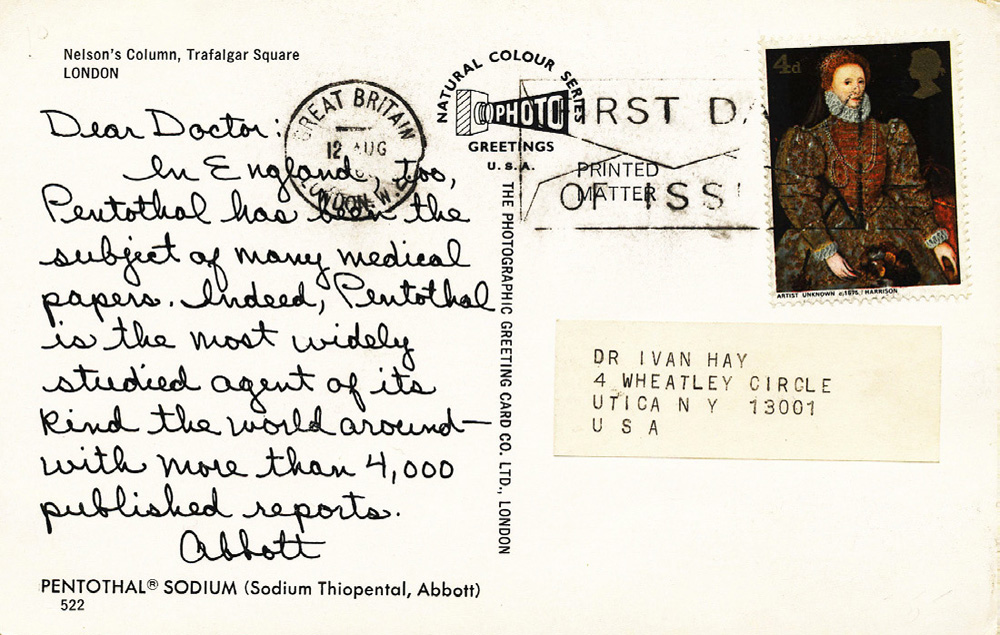 Nelson's Column, Trafalgar Square
LONDON
Dear Doctor:
In England, too,
Pentothal has been the
subject of many medical
papers. Indeed, Pentothal
is the most widely
studied agent of its
kind the world around—
with more than 4,000
published reports.
Abbott
PENTOTHAL® SODIUM (Sodium Thiopental, Abbott)
522
GREAT BRITAIN
12 AUG
LONDON W.
NATURAL COLOUR SERIES
PHOTO
GREETINGS
U.S.A.
THE PHOTOGRAPHIC GREETING CARD CO. LTD., LONDON
FIRST DA
PRINTED
MATTER
OF ISS
4d
ARTIST UNKNOWN c.1575 / HARRISON
DR IVAN HAY
4 WHEATLEY CIRCLE
UTICA N Y 13001
U S A